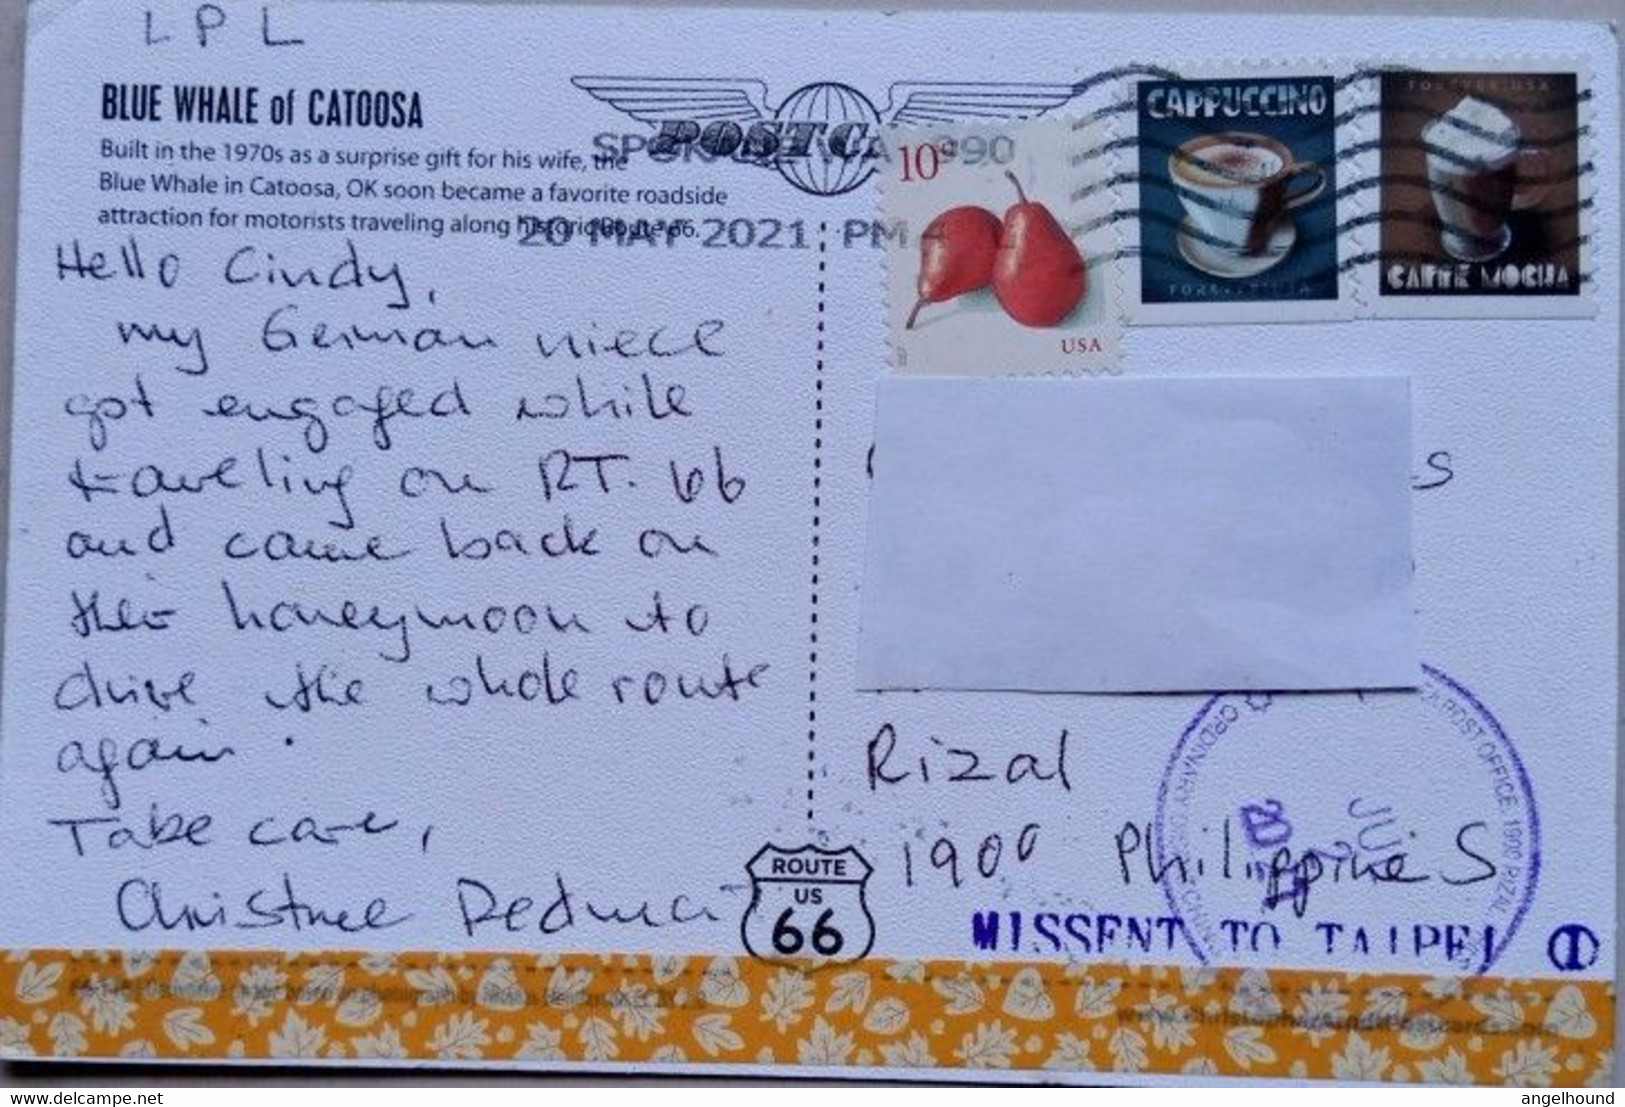 LPL
BLUE WHALE of CATOOSA
Built in the 1970s as a surprise gift for his wife, the
Blue Whale in Catoosa, OK soon became a favorite roadside
attraction for motorists traveling along historic Route 66.
POSTC
990
20 MAY 2021 PM 4 L
10¢
USA
CAPPUCCINO
FOREVER USA
FOREVER USA
CAFFE MOCHA
Hello Cindy,
my German niece
got engaged while
traveling on RT. 66
and came back on
their honeymoon to
drive the whole route
again.
Take care,
S
Rizal
1900 Philippines
POST OFFICE 1900 RIZAL
ORDINARY
JUL
MISSENT TO TAIPEI 1
ROUTE
US
66
hippostcard.com
angelhound